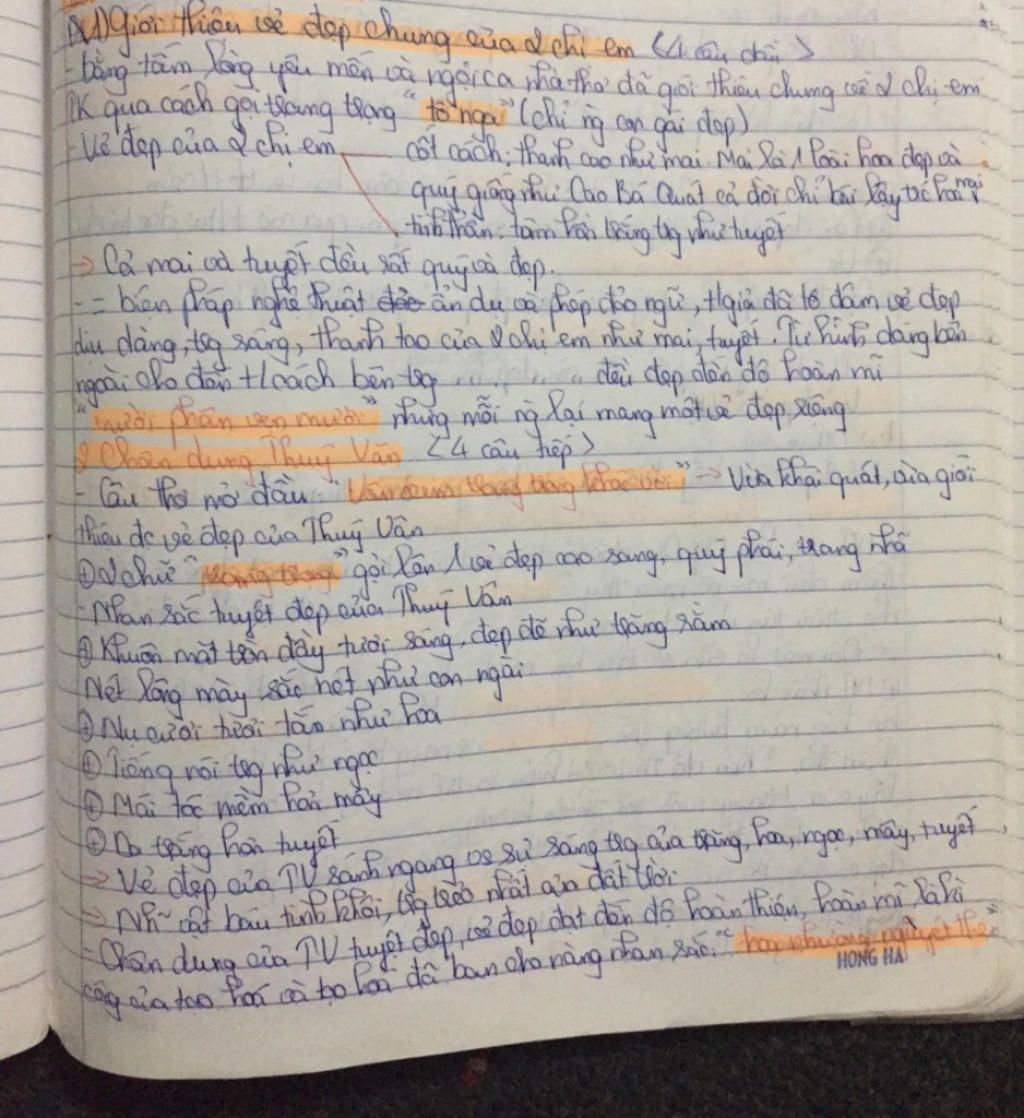 1) Giới thiệu vẻ đẹp chung của 2 chị em <4 câu đầu>
- bằng tấm lòng yêu mến và ngợi ca nhà thơ đã giới thiệu chung về 2 chị em
TK qua cách gọi trang trọng "tố nga" (chỉ ng con gái đẹp)
- Vẻ đẹp của 2 chị em cốt cách: thanh cao như mai. Mai là 1 loài hoa đẹp và
quý giống như Cao Bá Quát cả đời chỉ bái lậy trc hoa mai
tinh thần: tâm hồn trắng trg như tuyết
→ Cả mai và tuyết đều rất quý và đẹp.
- = biện pháp nghệ thuật ẩn dụ và phép đảo ngữ, t/giả đã tô đậm vẻ đẹp
dịu dàng, trg sáng, thanh tao của 2 chị em như mai, tuyết. Từ hình dáng bên
ngoài cho đến t/cách bên trg ......... đều đẹp đến độ hoàn mĩ
"mười phân vẹn mười" nhưng mỗi ng lại mang một vẻ đẹp riêng
2 Chân dung Thuý Vân <4 câu tiếp>
- Câu thơ mở đầu "Vân xem trang trọng khác vời" → Vừa khái quát, vừa giới
thiệu đc vẻ đẹp của Thuý Vân
⊕ 2 chữ "trang trọng" gợi lên 1 vẻ đẹp cao sang, quý phái, trang nhã
- Nhan sắc tuyệt đẹp của Thuý Vân
⊕ Khuôn mặt tròn đầy tươi sáng, đẹp đẽ như trăng rằm
Nét lông mày sắc nét như con ngài
⊕ Nụ cười tươi tắn như hoa
⊕ Tiếng nói trg như ngọc
⊕ Mái tóc mềm hơn mây
⊕ Da trắng hơn tuyết
→ Vẻ đẹp của TV sánh ngang vs sự sáng trg của trăng, hoa, ngọc, mây, tuyết
→ Nh~ vật báu tinh khôi, trg trẻo nhất của đất trời
- Chân dung của TV tuyệt đẹp, vẻ đẹp đạt đến độ hoàn thiện, hoàn mĩ là kì
công của tạo hoá và tạo hoá đã ban cho nàng nhan sắc. "hoa nhường nguyệt thẹn"
HONG HA